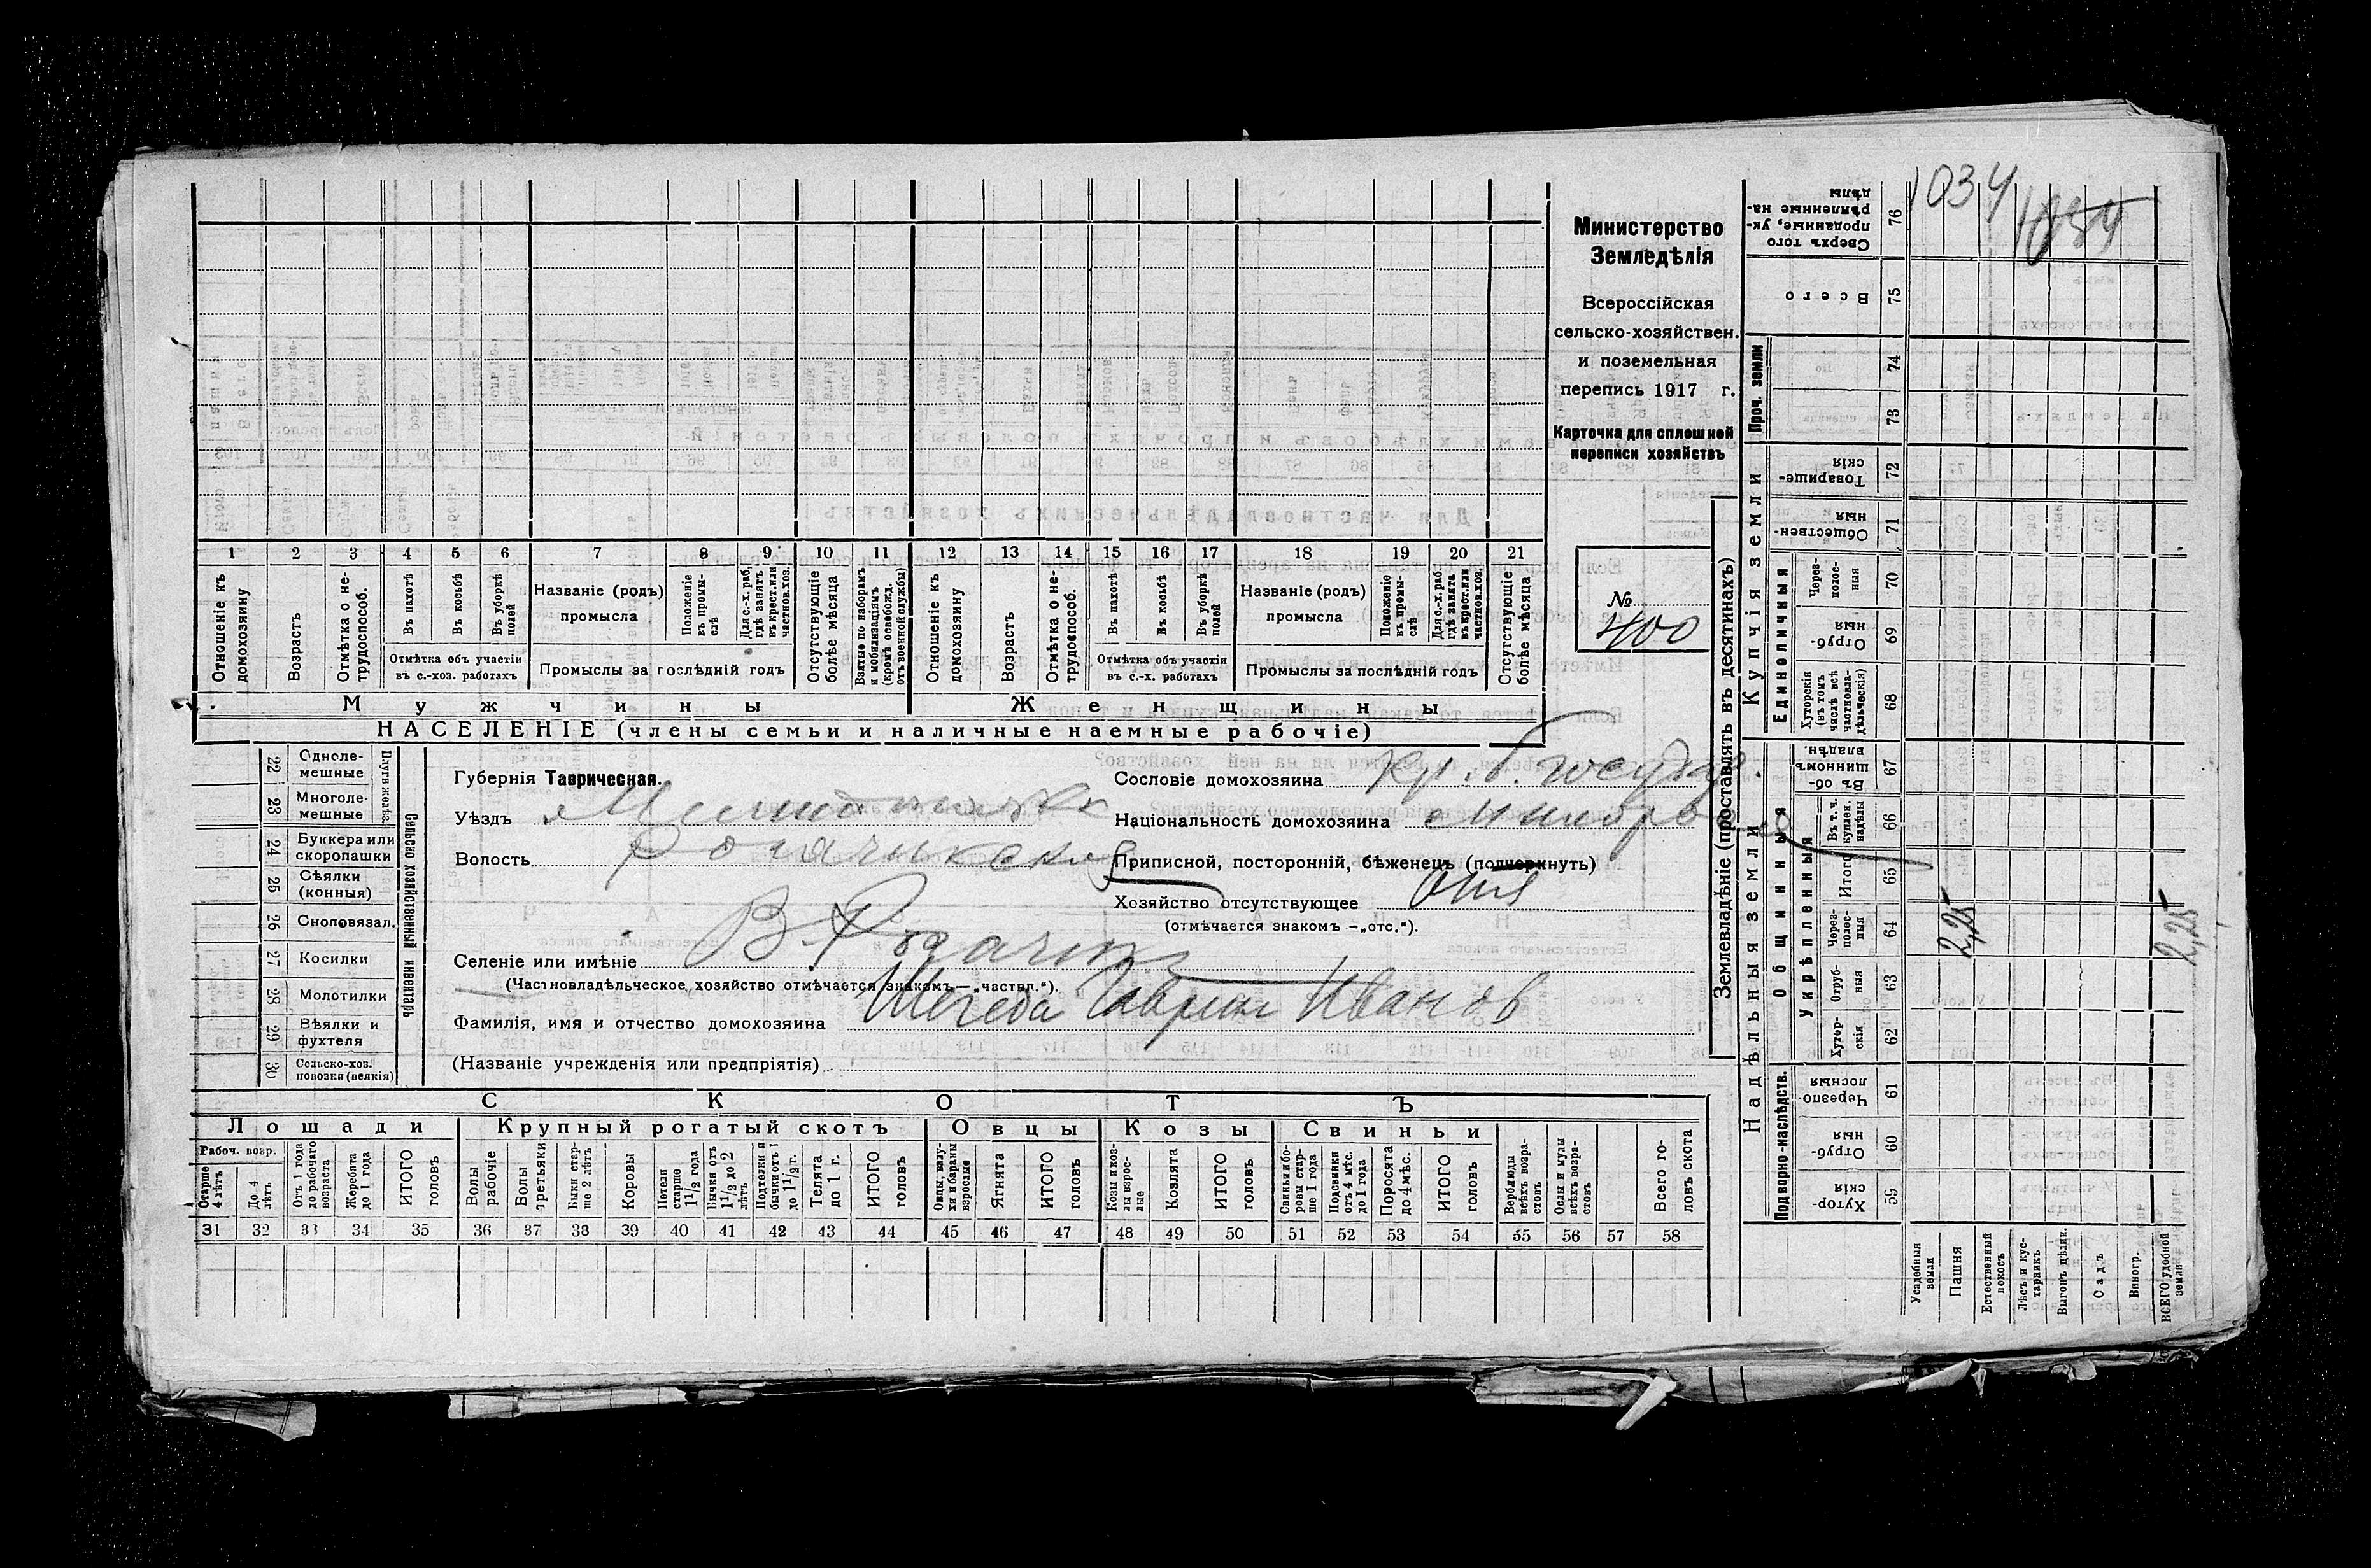 1034
1034
Министерство
Земледѣлія
Всероссійская
сельско-хозяйствен.
и поземельная
перепись 1917 г.
Карточка для сплошной
переписи хозяйствъ
№
400
1 2 3 4 5 6 7 8 9 10 11 12 13 14 15 16 17 18 19 20 21
Отношеніе къ домохозяину
Возрастъ
Отмѣтка о нетрудоспособ.
Въ пахотѣ
Въ косьбѣ
Въ уборкѣ полей
Отмѣтка объ участіи
въ с.-хоз. работахъ
Названіе (родъ)
промысла
Положеніе въ промыслѣ
Для с.-х. раб. гдѣ занятъ въ крест. или частнов. хоз.
Промыслы за послѣдній годъ
Отсутствующіе болѣе мѣсяца
Взятые по наборамъ и мобилизаціямъ (кромѣ освобожд. отъ военной службы)
Отношеніе къ домохозяину
Возрастъ
Отмѣтка о нетрудоспособ.
Въ пахотѣ
Въ косьбѣ
Въ уборкѣ полей
Отмѣтка объ участіи
въ с.-х. работахъ
Названіе (родъ)
промысла
Положеніе въ промыслѣ
Для с.-х. раб. гдѣ занята въ крест. или частнов. хоз.
Промыслы за послѣдній годъ
Отсутствующіе болѣе мѣсяца
Мужчины Женщины
НАСЕЛЕНІЕ (члены семьи и наличные наемные рабочіе)
22 Одноле-
мешные
23 Многоле-
мешные
24 Буккера или
скоропашки
25 Сѣялки
(конныя)
26 Сноповязал.
27 Косилки
28 Молотилки
29 Вѣялки и
фухтеля
30 Сельско-хоз.
повозки (всякія)
Сельско хозяйственный инвентарь
Губернія Таврическая.
Уѣздъ
Волость Рогачикская
Селеніе или имѣніе В-Рогачик
(Частновладѣльческое хозяйство отмѣчается знакомъ—„частвл.“).
Фамилія, имя и отчество домохозяина Шегеда Гаврил Иванов
(Названіе учрежденія или предпріятія)
Сословіе домохозяина Кр. б. государ.
Національность домохозяина малор
Приписной, посторонній, бѣженецъ (подчеркнуть)
Хозяйство отсутствующее
(отмѣчается знакомъ —„отс.“).
СКОТЪ
Лошади Крупный рогатый скотъ Овцы Козы Свиньи
Рабоч. возр.
Старше 4 лѣтъ
До 4 лѣтъ
Отъ 1 года до рабочаго возраста
Жеребята до 1 года
ИТОГО головъ
Волы рабочіе
Волы третьяки
Быки старше 2 лѣтъ
Коровы
Нетели старше 1½ года
Бычки отъ 1½ до 2 лѣтъ
Подтелки и бычки отъ 1 до 1½ г.
Телята до 1 г.
ИТОГО головъ
Овцы, валухи и бараны взрослые
Ягнята
ИТОГО головъ
Козы и козлы взрослые
Козлята
ИТОГО головъ
Свиньи и боровы старше 1 года
Подсвинки отъ 4 мѣс. до 1 года
Поросята до 4 мѣс.
ИТОГО головъ
Верблюды всѣхъ возрастовъ
Ослы и мулы всѣхъ возрастовъ
Всего головъ скота
31 32 33 34 35 36 37 38 39 40 41 42 43 44 45 46 47 48 49 50 51 52 53 54 55 56 57 58
Землевладѣніе (проставлять въ десятинахъ)
Надѣльныя земли Купчія земли Проч. земли
Подворно-наслѣдств.
Общинныя
Укрѣпленныя
Единоличныя
Хуторскія 59
Отрубныя 60
Черезполосныя 61
Хуторскія 62
Отрубныя 63
Через-полосныя 64
Итого 65
Въ т. ч. куплен. надѣлы 66
Въ общинномъ владѣн. 67
Хуторскія (въ томъ числѣ всѣ частновладѣльческія) 68
Отрубныя 69
Через-полосныя 70
Общественныя 71
Товарищескія 72
73
74
Всего 75
Сверхъ того проданные, укрѣпленные надѣлы 76
Усадебныя земля
Пашня
Естественный покосъ
Лѣсъ и кустарникъ
Выгонъ цѣлин.
Садъ
Виногр.
ВСЕГО удобной земли
2,25
2,25